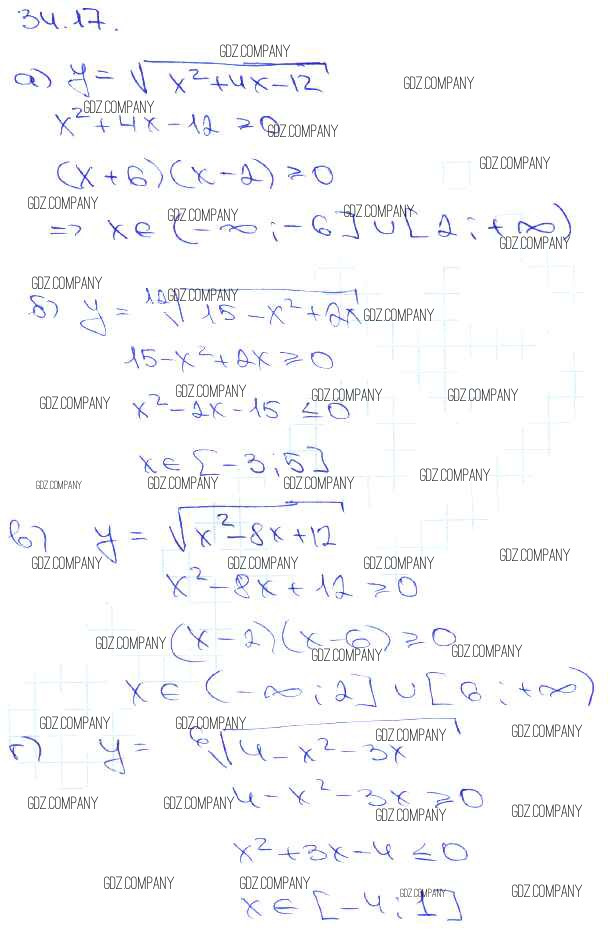 34.17.
GDZ.COMPANY
а) y = √x²+4x-12 GDZ.COMPANY
GDZ.COMPANY
x²+4x-12 ≥0 GDZ.COMPANY
GDZ.COMPANY
(x+6)(x-2) ≥0
GDZ.COMPANY GDZ.COMPANY GDZ.COMPANY
=> x∈ (-∞;-6]∪[2;+∞)
GDZ.COMPANY
GDZ.COMPANY GDZ.COMPANY
б) y = ¹²√15-x²+2x GDZ.COMPANY
15-x²+2x ≥0
GDZ.COMPANY GDZ.COMPANY GDZ.COMPANY GDZ.COMPANY
x²-2x-15 ≤0
x∈[-3;5]
GDZ.COMPANY GDZ.COMPANY GDZ.COMPANY GDZ.COMPANY
в) y = √x²-8x+12
GDZ.COMPANY GDZ.COMPANY GDZ.COMPANY GDZ.COMPANY
x²-8x+12 ≥0
GDZ.COMPANY (x-2)(x-6) ≥0
GDZ.COMPANY GDZ.COMPANY
x∈ (-∞;2] ∪[6;+∞)
GDZ.COMPANY GDZ.COMPANY GDZ.COMPANY GDZ.COMPANY
г) y = ⁶√4-x²-3x
GDZ.COMPANY GDZ.COMPANY 4-x²-3x ≥0
GDZ.COMPANY GDZ.COMPANY
x²+3x-4 ≤0
GDZ.COMPANY GDZ.COMPANY GDZ.COMPANY GDZ.COMPANY
x∈[-4;1]